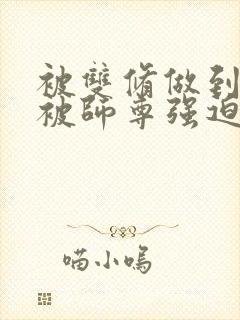 被雙脩做到
被師尊强迫
喵小嗚